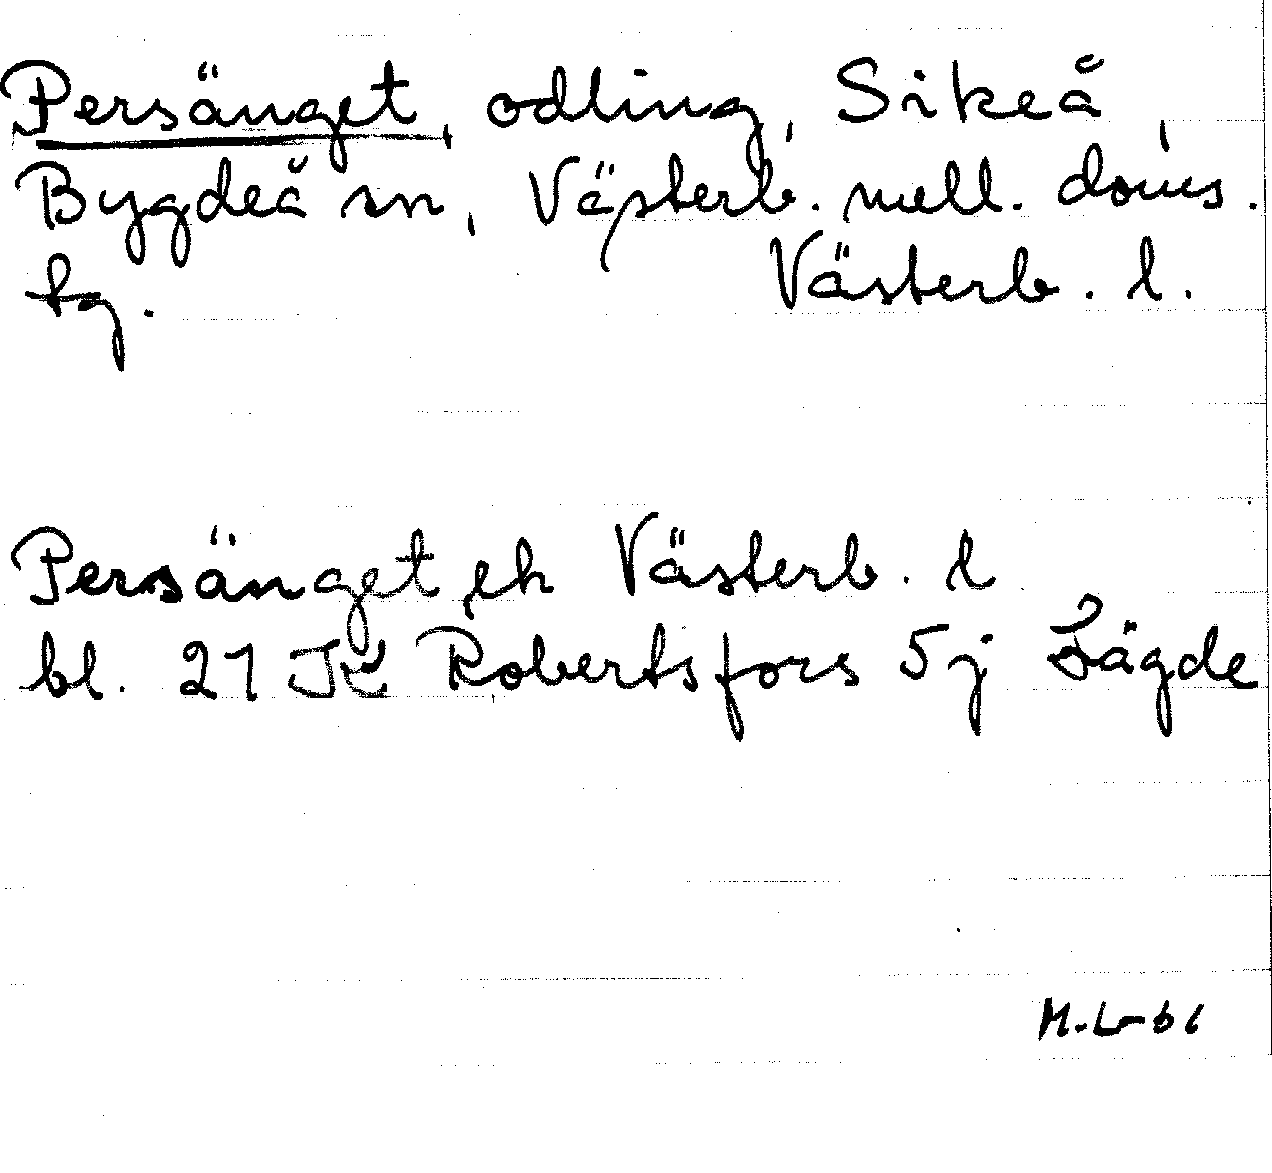 Persänget, odling, Sikeå,
Bygdeå sn, Västerb. mell. doms.
tg. Västerb. l.
Persänget, ek Västerb. l
bl. 21 JK Robertsfors 5 j Lägde
M.L-66